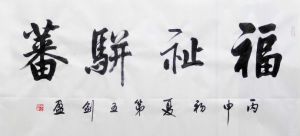 福祉駢蕃
丙申初夏第五剑盈